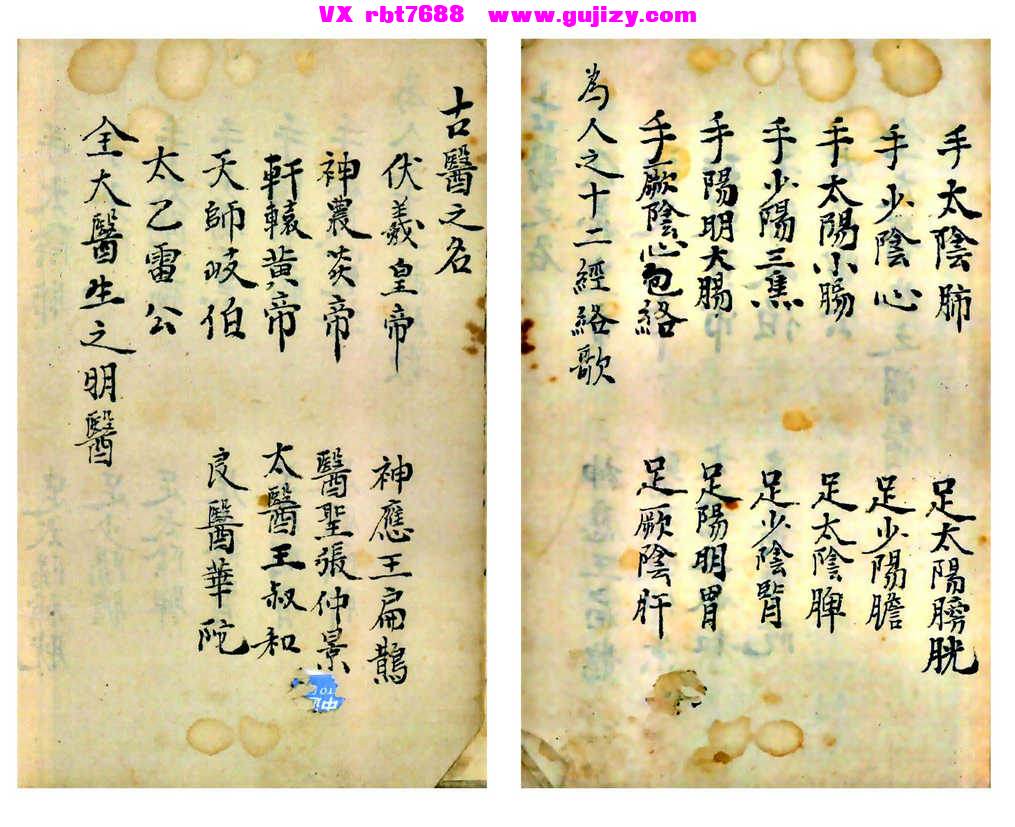 VX rbt7688 www.gujizy.com
手太陰肺 足太陽膀胱
手少陰心 足少陽膽
手太陽小腸 足太陰脾
手少陽三焦 足少陰腎
手陽明大腸 足陽明胃
手厥陰心包絡 足厥陰肝
為人之十二經絡歌
古醫之名
伏羲皇帝 神應王扁鵲
神農炎帝 醫聖張仲景
軒轅黃帝 太醫王叔和
天師岐伯 良醫華陀
太乙雷公
全大醫生之明醫